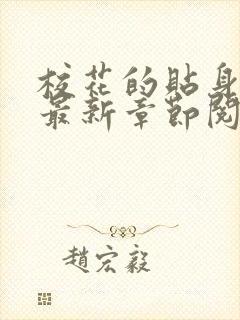 校花的貼身
最新章節閱
趙宏毅